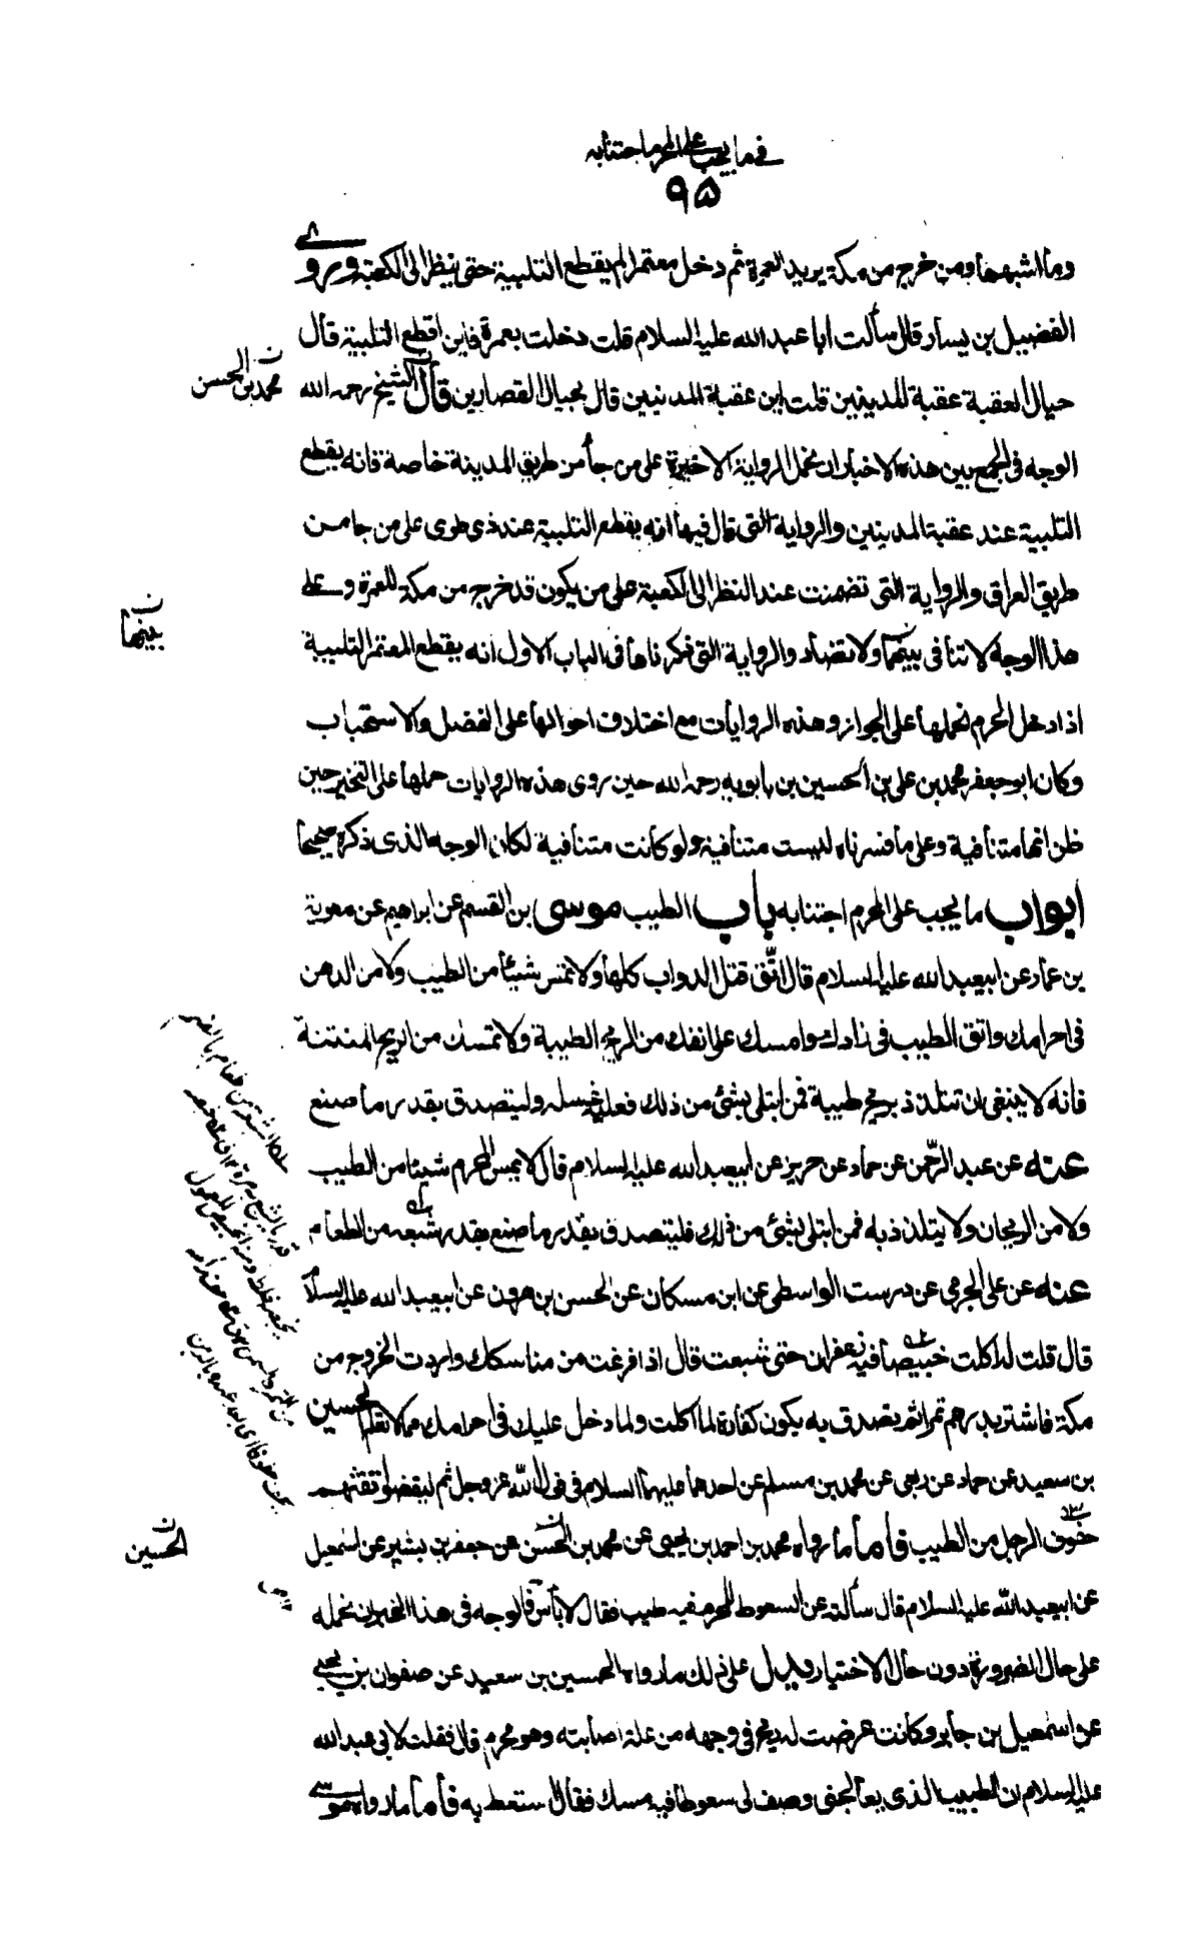 في ما يجب على المحرم اجتنابه
٩۵
وما اشبهها ومن خرج من مكة يريد العمرة ثم دخل معتمرا لم يقطع التلبية حتى ينظر الى الكعبة وروى
الفضيل بن يسار قال سألت ابا عبد الله عليه السلام قلت دخلت بعمرة فاين اقطع التلبية قال
حيال العقبة عقبة المدينين قلت اين عقبة المدنيين قال بحيال القصارين قال الشيخ رحمه الله
محمد بن الحسن
الوجه في الجمع بين هذه الاخبار ان نحمل الرواية الاخيرة على من جاء من طريق المدينة خاصة فانه يقطع
التلبية عند عقبة المدينين والرواية التي قال فيها انه يقطع التلبية عند ذى طوى على من جا من
طريق العراق والرواية التي تضمنت عند النظر الى الكعبة على من يكون قد خرج من مكة للعمرة وعلى
هذا الوجه لا تنافى بينهما ولا تضاد والرواية التي ذكرناها في الباب الاول انه يقطع المعتمر التلبية
بينهما
اذا دخل الحرم نحملها على الجواز وهذه الروايات مع اختلاف احوالها على الفضل والاستحباب
وكان ابو جعفر محمد بن على بن الحسين بن بابويه رحمه الله حين روى هذه الروايات حملها على التخير حين
ظن انها متنافية وعلى ما فسرناه ليست متنافية ولو كانت متنافية لكان الوجه الذى ذكره صحيحا
ابواب ما يجب على المحرم اجتنابه باب الطيب موسى بن القسم عن ابراهيم عن معوية
بن عمار عن ابيعبد الله عليه السلام قال اتّق قتل الدواب كلها ولا تمس شيئا من الطيب ولا من الدهن
في احرامك واتق الطيب في زادك وامسك على انفك من الريح الطيبة ولا تمسك من الريح المنتنة
فانه لا ينبغى ان تتلذذ بريح طيبة فمن ابتلى بشئ من ذلك فعليه غسله وليتصدق بقدر ما صنع
عنه عن عبد الرّحمن عن حماد عن حريز عن ابيعبد الله عليه السلام قال لا يمس المحرم شيئا من الطيب
ولا من الريحان ولا يتلذذ به فمن ابتلى بشئ من ذلك فليتصدق بقدر ما صنع بقدر شبعه من الطعام
عنه عن على الجرمى عن درست الواسطى عن ابن مسكان عن الحسن بن هرون عن ابيعبد الله عليه السلام
قال قلت له اكلت خبيصا فيه زعفران حتى شبعت قال اذا فرغت من مناسكك واردت الخروج من
مكة فاشتر بدرهم تمرا ثم تصدق به يكون كفارة لما اكلت ولما دخل عليك في احرامك مما لا تعلم الحسين
بن سعيد عن حماد عن ربعى عن محمد بن مسلم عن احدهما عليهما السلام في قول الله عز وجل ثم ليقضوا تفثهم
حفوف الرجل من الطيب فأما ما رواه محمد بن احمد بن يحيى عن محمد بن الحسن عن جعفر بن بشير عن اسمعيل
الحسين
عن ابيعبد الله عليه السلام قال سألته عن السعوط للمحرم فيه طيب فقال لا بأس فالوجه في هذا الخبر ان نحمله
على حال الضرورة دون حال الاختيار ويدل على ذلك ما رواه الحسين بن سعيد عن صفوان بن يحيى
عن اسمعيل بن جابر وكانت عرضت له ريح في وجهه من علة اصابته وهو محرم قال فقلت لابى عبد الله
عليه السلام ان الطبيب الذى يعالجنى وصف لى سعوطا فيه مسك فقال استعط به فأما ما رواه موسى